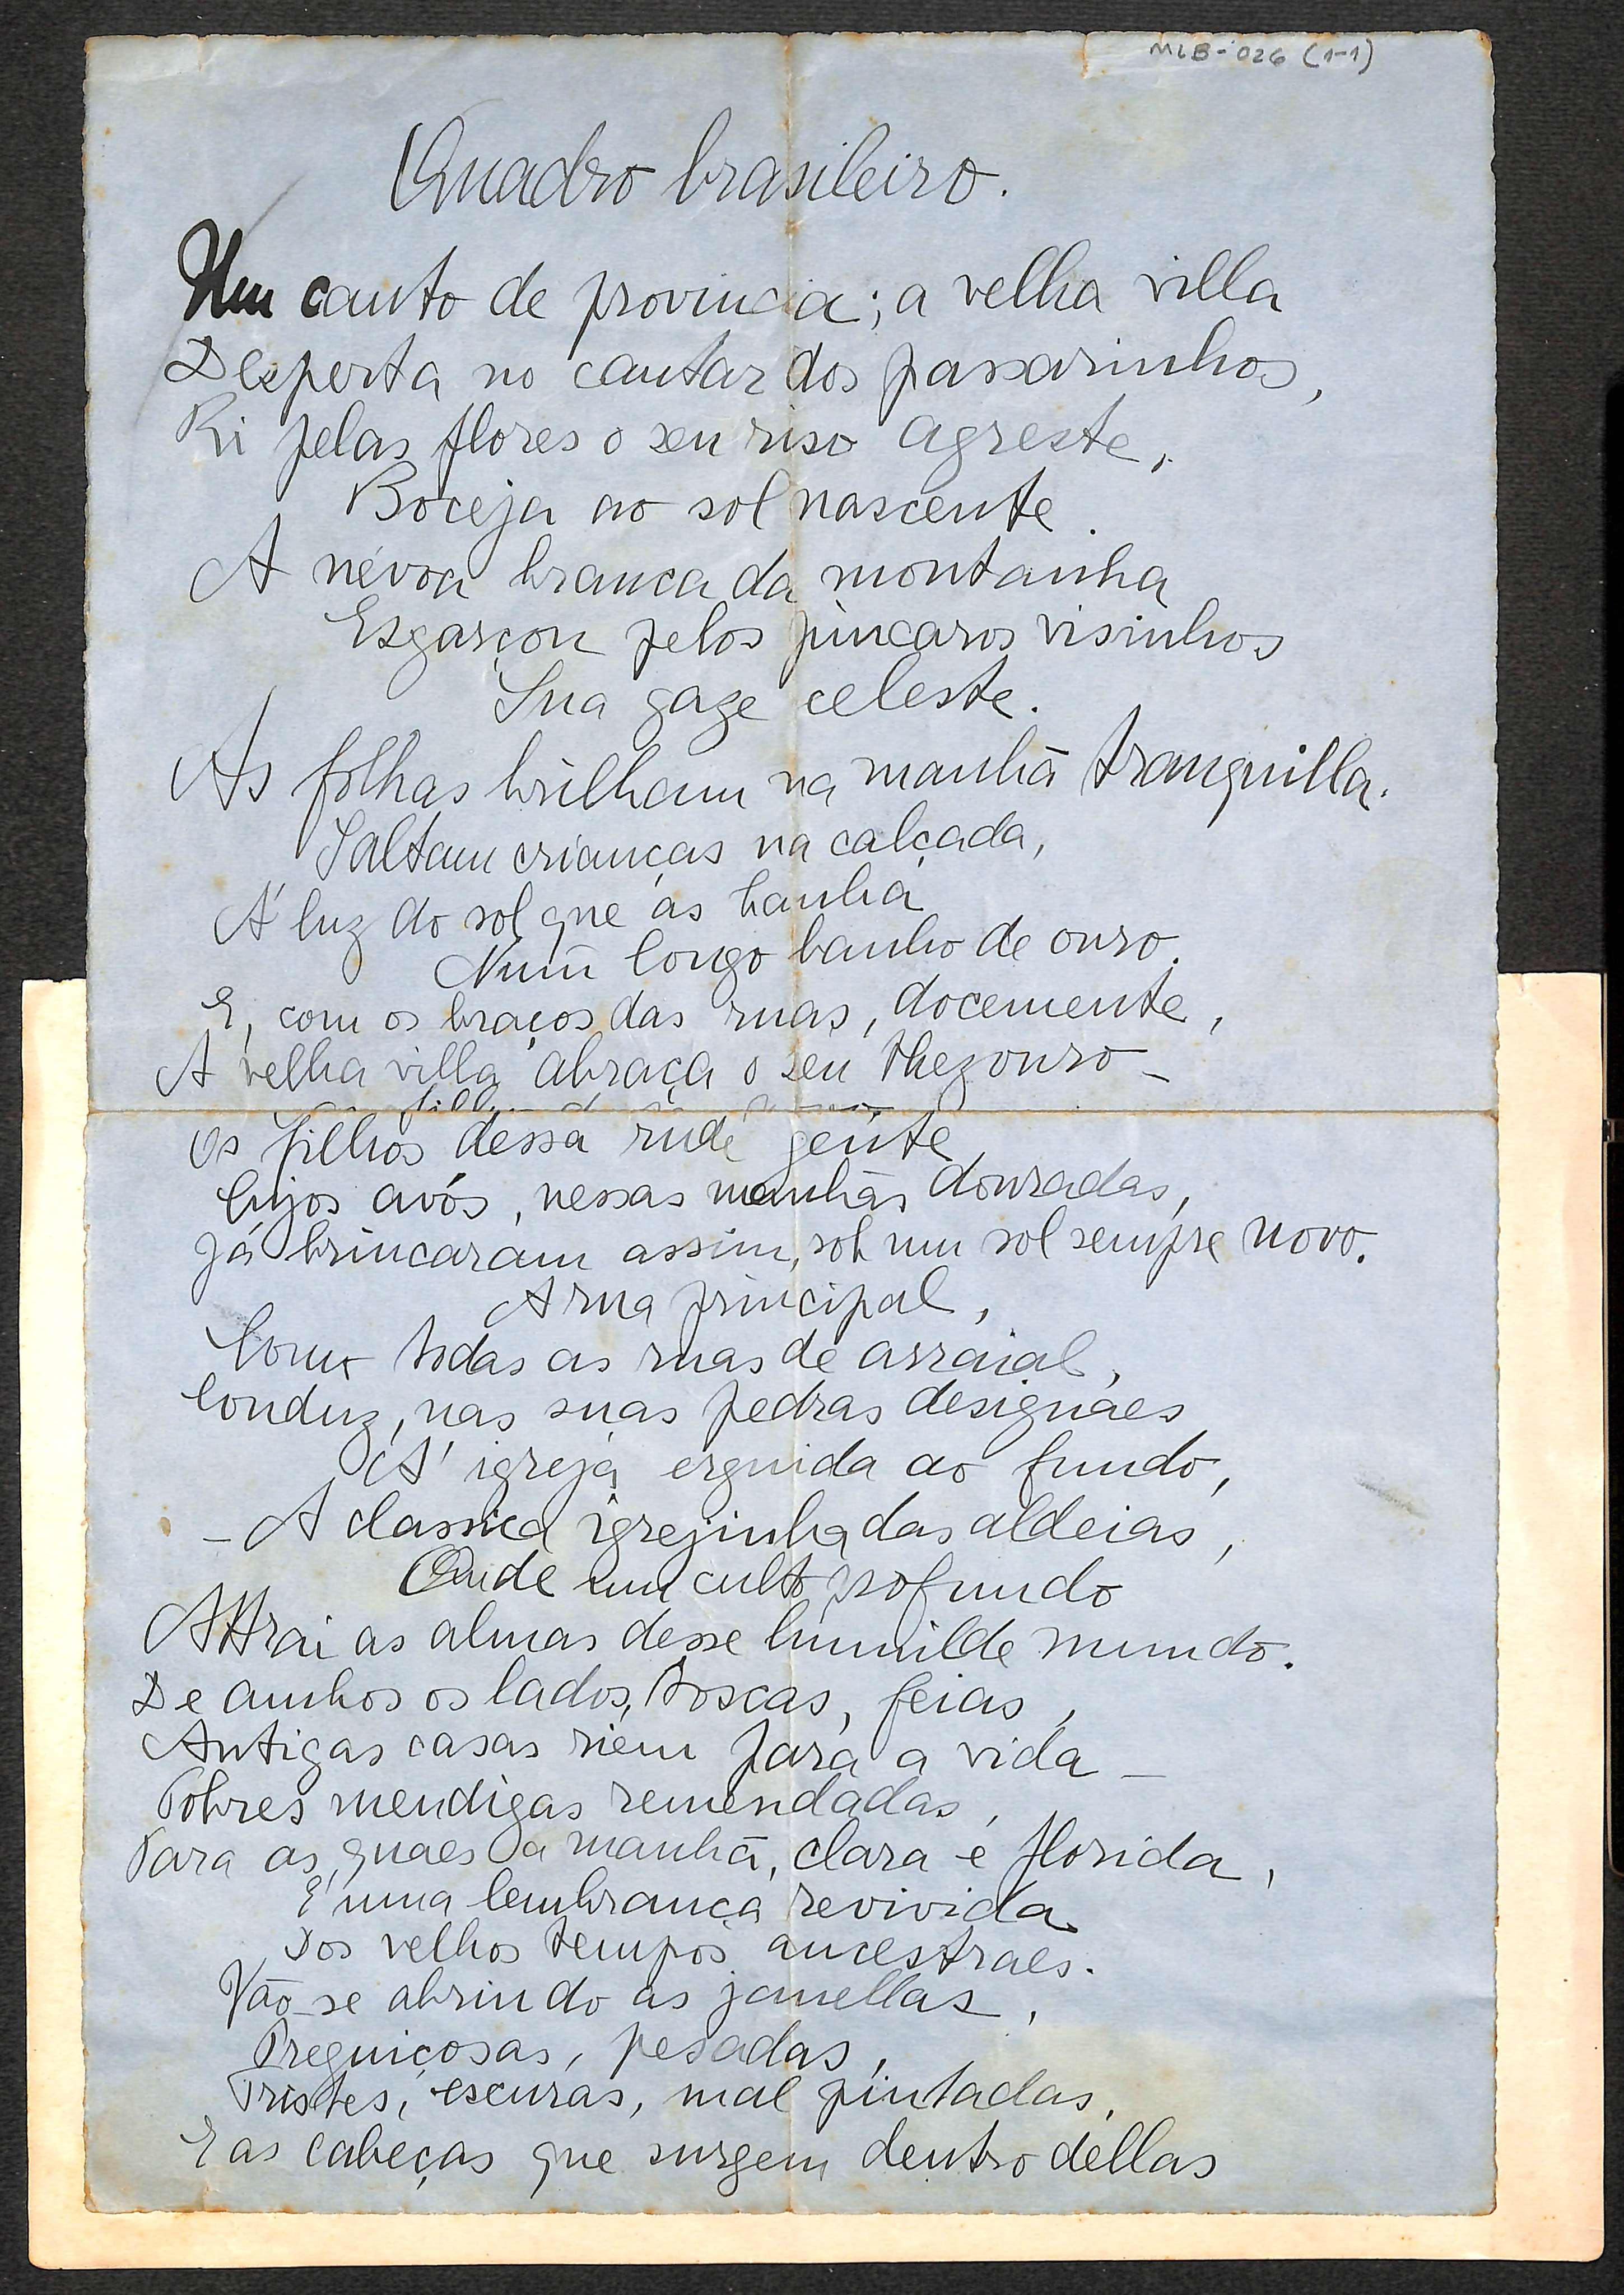 MLB-026 (1-1)
Quadro brasileiro.
Um canto de provincia; a velha villa
Desperta no cantar dos passarinhos,
Ri pelas flores o seu riso agreste,
Boceja ao sol nascente.
A névoa branca da montanha
Esgarçou pelos pincaros visinhos
Sua gaze celeste.
As folhas brilham na manhã tranquilla.
Saltam crianças na calçada,
Á luz do sol que as banha
Num longo banho de ouro.
E, com os braços das ruas, docemente,
A velha villa abraça o seu thezouro -
Os filhos dessa rude gente
Cujos avós, nessas manhãs douradas,
Já brincaram assim, sob um sol sempre novo.
A rua principal,
Como todas as ruas de arraial,
Conduz, nas suas pedras desiguaes
A' igreja erguida ao fundo,
- A classica igrejinha das aldeias,
Onde um culto profundo
Attrai as almas desse humilde mundo.
De ambos os lados, toscas, feias,
Antigas casas riem para a vida -
Pobres mendigas remendadas,
Para as quaes a manhã, clara e florida,
E' uma lembrança revivida
Dos velhos tempos ancestraes.
Vão-se abrindo as janellas,
Preguiçosas, pesadas,
Tristes, escuras, mal pintadas,
E as cabeças que surgem dentro dellas